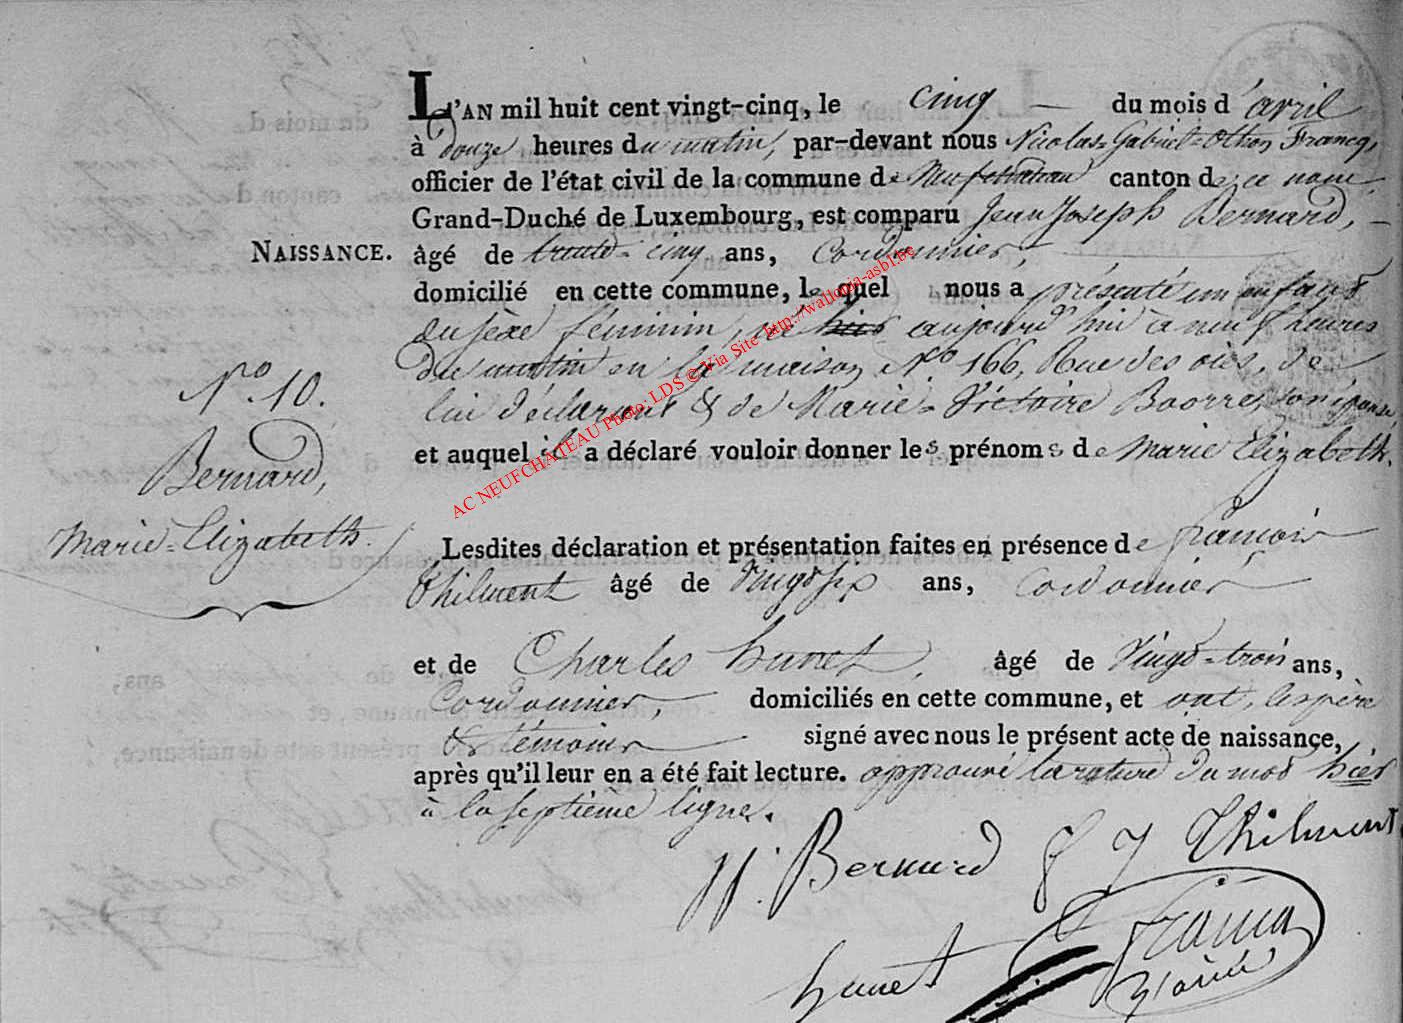 L'AN mil huit cent vingt-cinq, le cinq du mois d'avril
à douze heures du matin, par-devant nous Nicolas-Gabriel-Othon Francq,
officier de l'état civil de la commune de Neufchateau canton de ce nom,
Grand-Duché de Luxembourg, est comparu Jean Joseph Bernard,
NAISSANCE. âgé de trente-cinq ans, Cordonnier,
domicilié en cette commune, le quel nous a présenté un enfant
du sexe féminin, né hier aujourd'hui à neuf heures
du matin en la maison No 166, Rue des oies, de
lui déclarant & de Marie-Victoire Boorre, son épouse,
et auquel il a déclaré vouloir donner les prénoms de Marie Elizabeth.
No. 10.
Bernard,
Marie-Elizabeth.
Lesdites déclaration et présentation faites en présence de françois
Thilment âgé de Vingt six ans, Cordonnier
et de Charles hunet, âgé de Vingt-trois ans,
Cordonnier, domiciliés en cette commune, et ont, les père
& témoins signé avec nous le présent acte de naissance,
après qu'il leur en a été fait lecture. approuvé la rature du mot hier
à la septième ligne.
JJ. Bernard f J Thilment
hunet Francq
AC NEUFCHATEAU Photo: LDS © Via Site http://wallonia-asbl.be